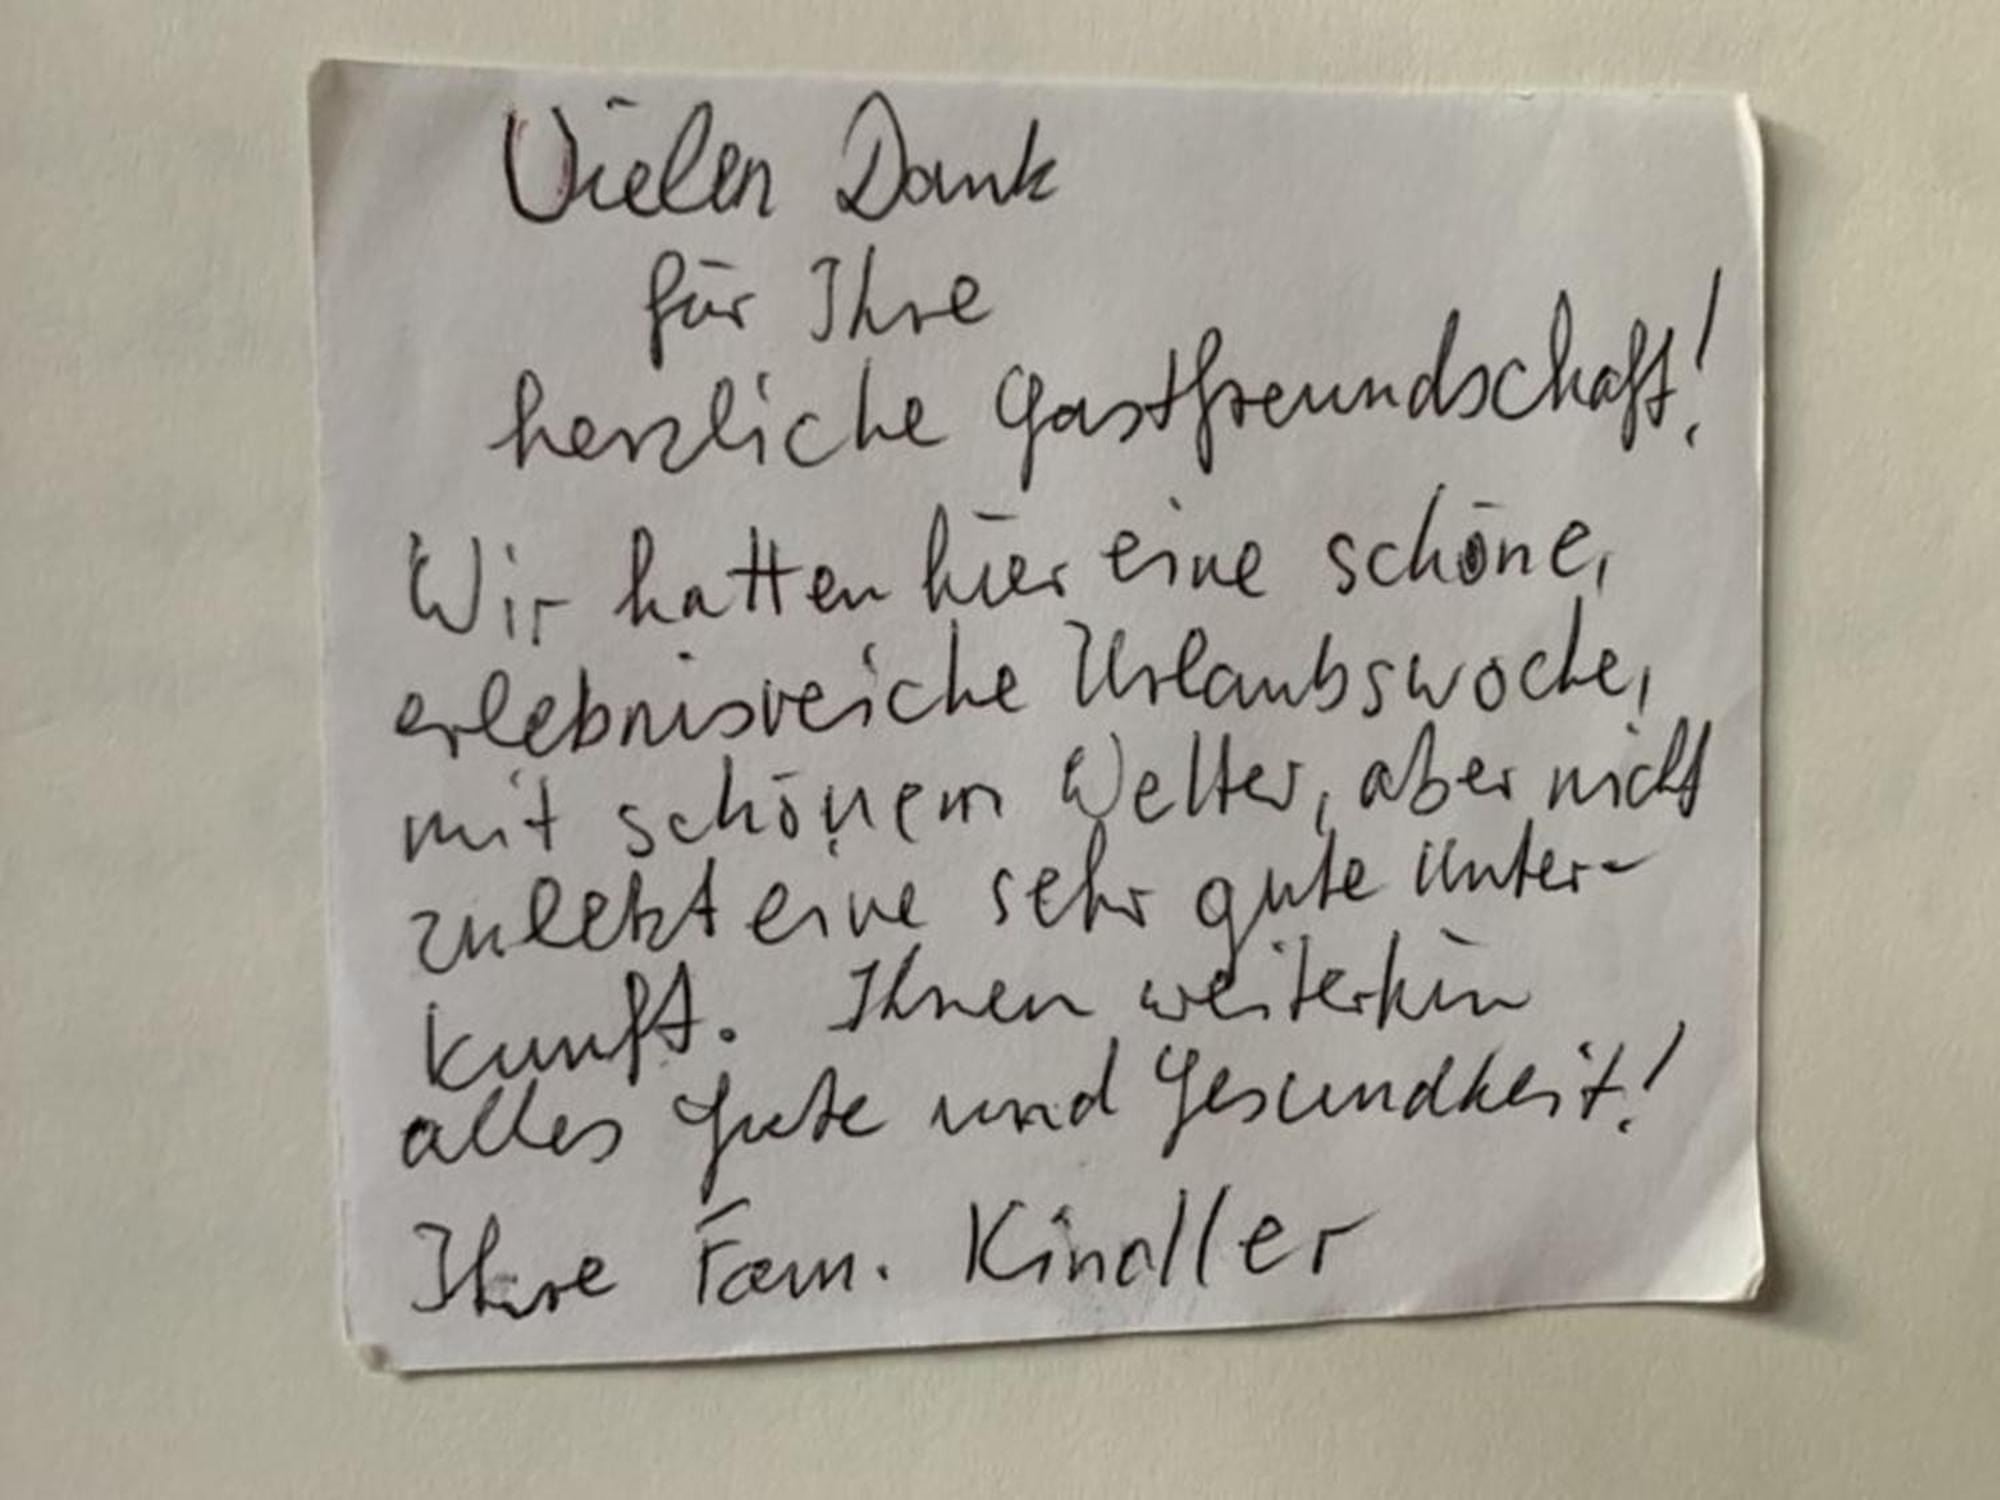 Vielen Dank
für Ihre
herzliche Gastfreundschaft!
Wir hatten hier eine schöne,
erlebnisreiche Urlaubswoche,
mit schönem Wetter, aber nicht
zuletzt eine sehr gute Unter-
kunft. Ihnen weiterhin
alles Gute und Gesundheit!
Ihre Fam. Kindler